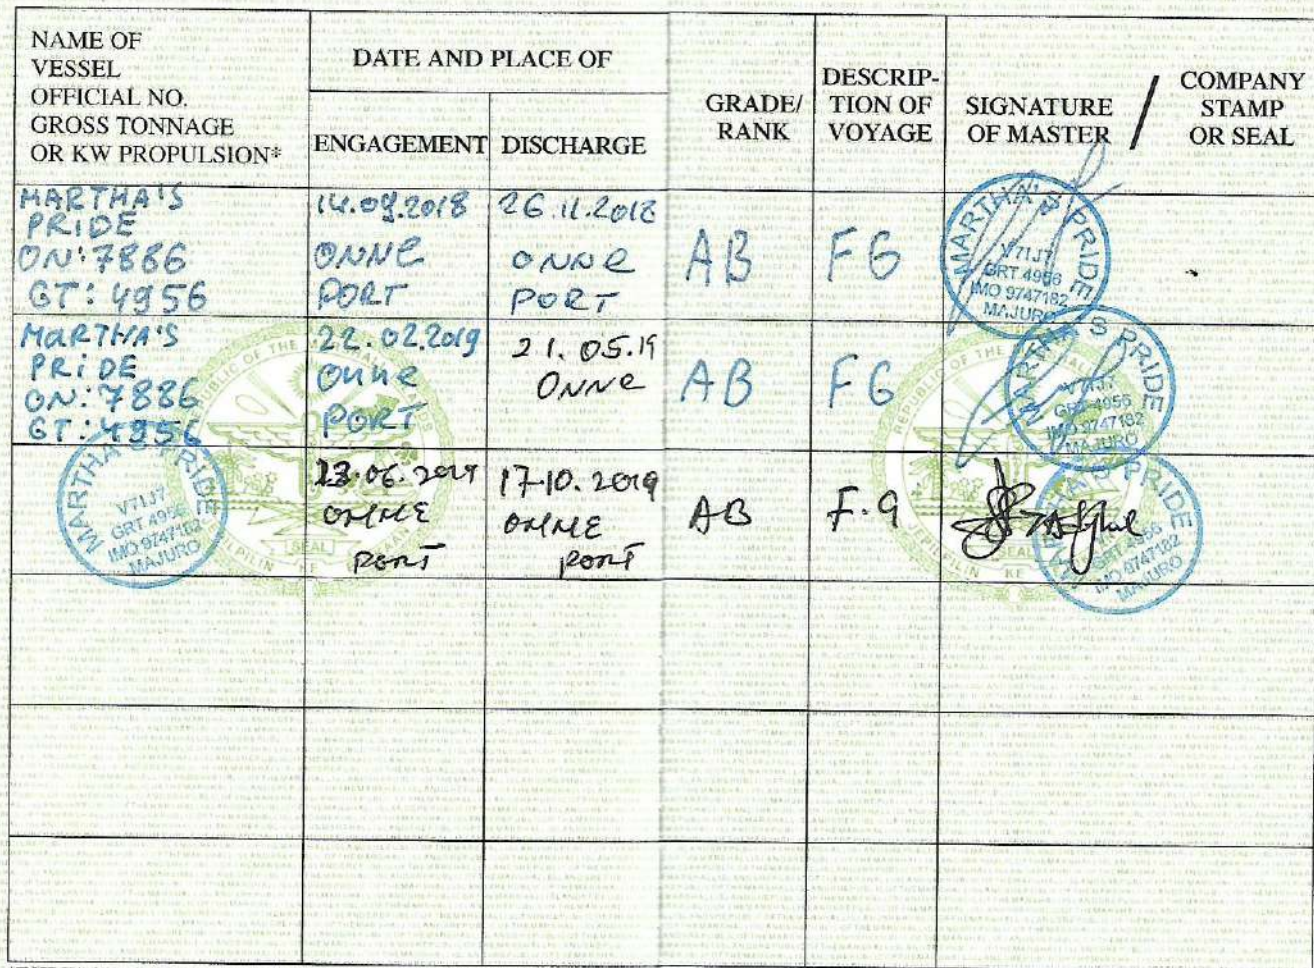 NAME OF
VESSEL
OFFICIAL NO.
GROSS TONNAGE
OR KW PROPULSION*
DATE AND PLACE OF
ENGAGEMENT
DISCHARGE
GRADE/
RANK
DESCRIP-
TION OF
VOYAGE
SIGNATURE
OF MASTER
/
COMPANY
STAMP
OR SEAL
MARTHA'S
PRIDE
ON: 7886
GT: 4956
14.09.2018
ONNE
PORT
26.11.2018
ONNE
PORT
AB
FG
MARTHA'S PRIDE
V71J7
GRT 4956
IMO 9747182
MAJURO
MARTHA'S
PRIDE
ON: 7886
GT: 4956
22.02.2019
Onne
PORT
21.05.19
ONNE
AB
FG
MARTHA'S PRIDE
V71J7
GRT 4956
IMO 9747182
MAJURO
MARTHA'S PRIDE
V71J7
GRT 4956
IMO 9747182
MAJURO
23.06.2019
ONNE
PORT
17.10.2019
ONNE
PORT
AB
F.G
MARTHA'S PRIDE
GRT 4956
IMO 9747182
MAJURO
REPUBLIC OF THE MARSHALL ISLANDS
SEAL
JEPILPILIN KE
REPUBLIC OF THE
SEAL
JEPILPILIN KE